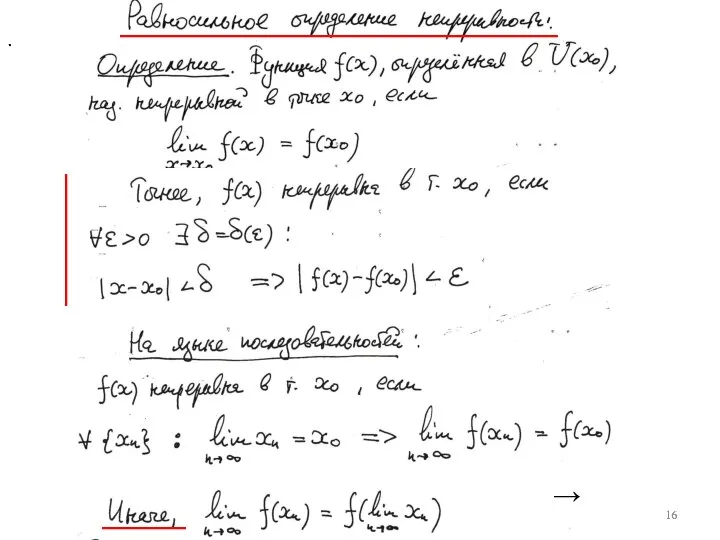 Равносильное определение непрерывности:
Определение. Функция f(x), определённая в U(x₀),
наз. непрерывной в точке x₀, если
lim f(x) = f(x₀)
x→x₀
Точнее, f(x) непрерывна в т. x₀, если
∀ε>0 ∃δ=δ(ε):
|x-x₀|<δ => |f(x)-f(x₀)|<ε
На языке последовательностей:
f(x) непрерывна в т. x₀, если
∀{xₙ} : lim xₙ = x₀ => lim f(xₙ) = f(x₀)
n→∞ n→∞
Иначе, lim f(xₙ) = f(lim xₙ)
n→∞ n→∞
→
16